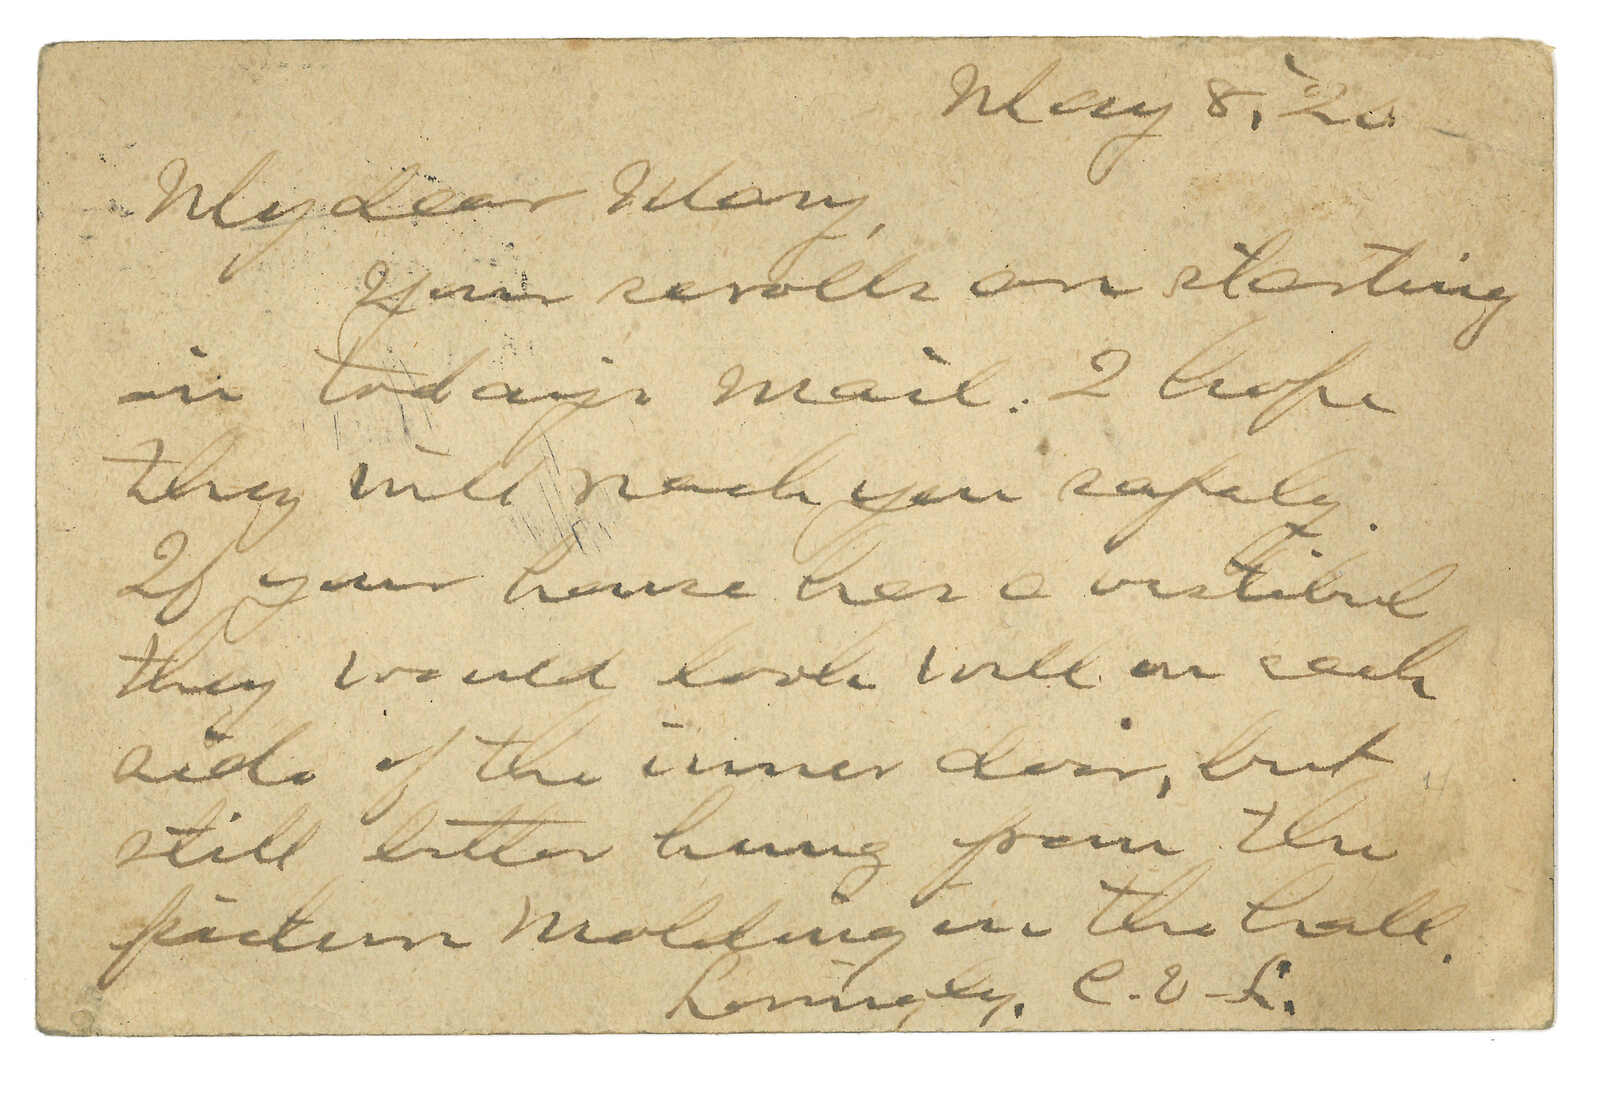 May 8, '20
My dear Mary,
Your scrolls are starting
in today's mail. I hope
they will reach you safely.
If your house has a vestibul
they would look well on each
side of the inner door, but
still better hung from the
picture molding in the hall.
Lovingly, C.V.L.